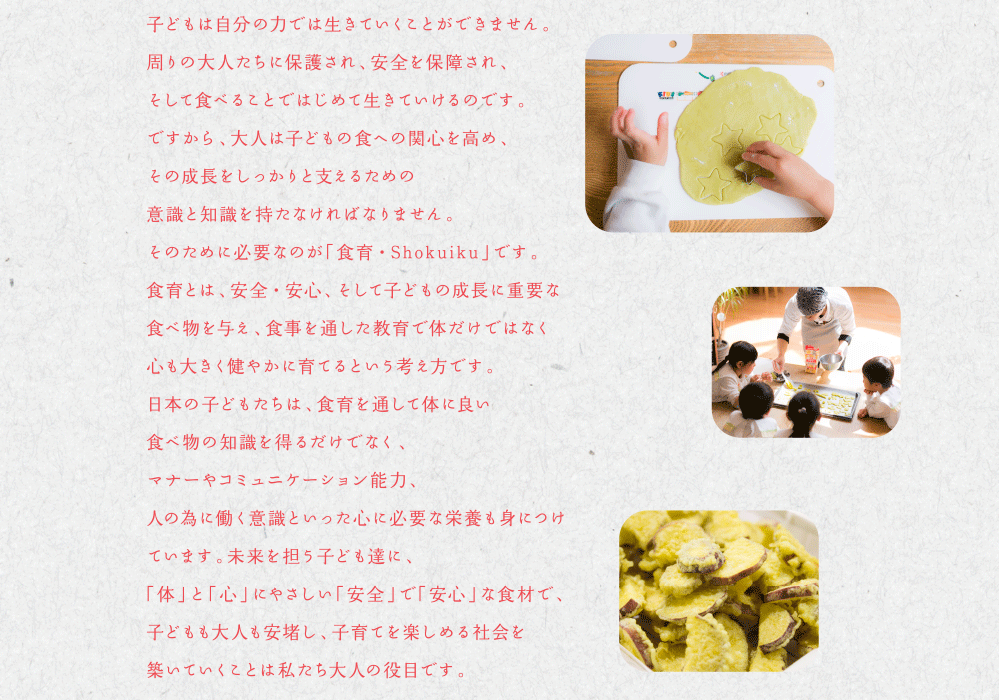 子どもは自分の力では生きていくことができません。
周りの大人たちに保護され、安全を保障され、
そして食べることではじめて生きていけるのです。
ですから、大人は子どもの食への関心を高め、
その成長をしっかりと支えるための
意識と知識を持たなければなりません。
そのために必要なのが「食育・Shokuiku」です。
食育とは、安全・安心、そして子どもの成長に重要な
食べ物を与え、食事を通した教育で体だけではなく
心も大きく健やかに育てるという考え方です。
日本の子どもたちは、食育を通して体に良い
食べ物の知識を得るだけでなく、
マナーやコミュニケーション能力、
人の為に働く意識といった心に必要な栄養も身につけ
ています。未来を担う子ども達に、
「体」と「心」にやさしい「安全」で「安心」な食材で、
子どもも大人も安堵し、子育てを楽しめる社会を
築いていくことは私たち大人の役目です。